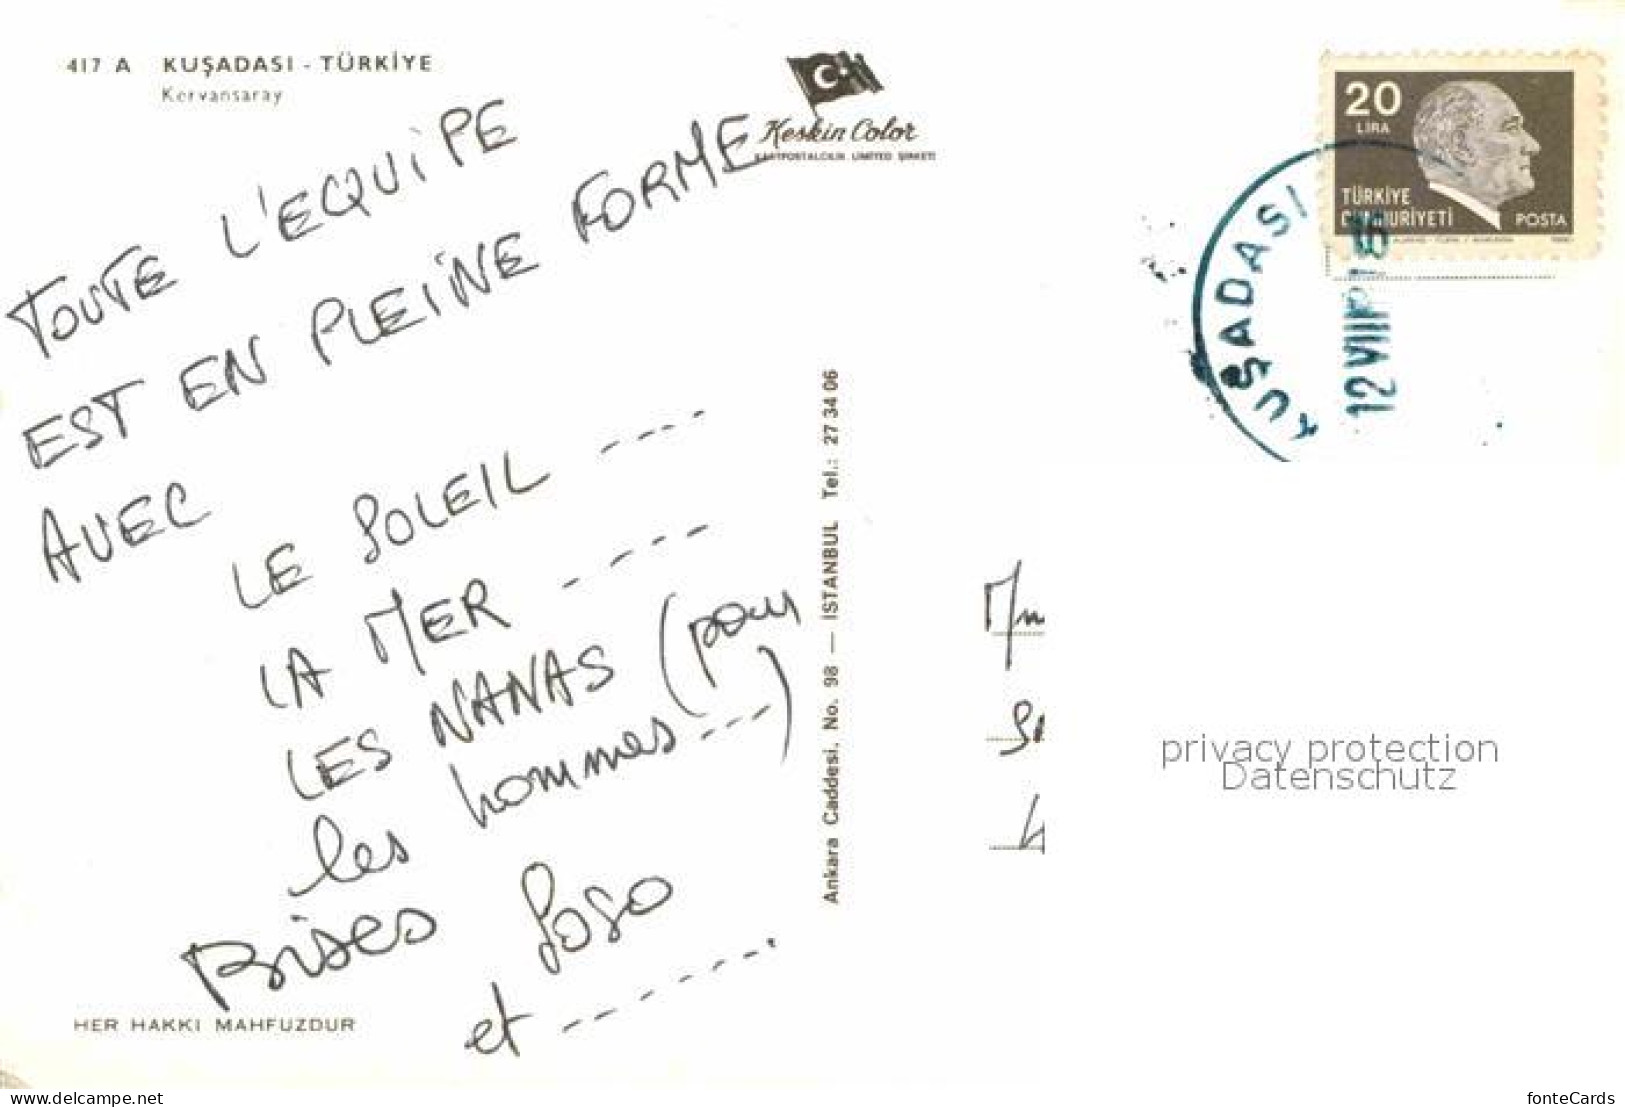 417 A KUŞADASI - TÜRKİYE
Kervansaray
Keskin Color
KARTPOSTALCILIK LIMITED ŞİRKETİ
TOUTE L'EQUiPE
EST EN PLEiNE FORME
AVEC
LE SOLEIL ----
LA MER ----
LES NANAS (pour
les hommes ---)
Bises Soso
et -------
HER HAKKI MAHFUZDUR
Ankara Caddesi, No. 98 — İSTANBUL Tel.: 27 34 06
20
LİRA
TÜRKİYE
CUMHURİYETİ
POSTA
KUŞADASI
12 VIII
privacy protection
Datenschutz
www.delcampe.net
fonteCards